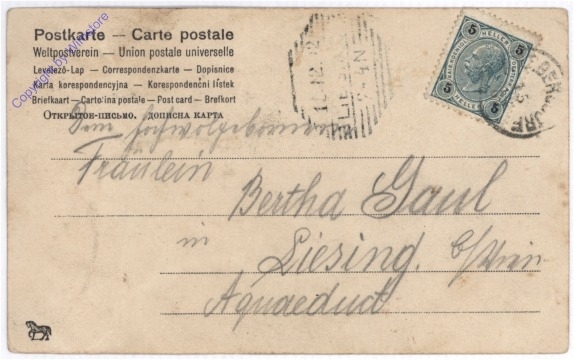 Postkarte — Carte postale
Weltpostverein — Union postale universelle
Levelező-Lap — Correspondenzkarte — Dopisnice
Karta korespondencyjna — Korespondenčni lístek
Briefkaart — Cartolina postale — Post card — Brefkort
Открытое-письмо. дописна карта
Copyright by
5 5
HELLER
5 5
Dem hochwolgeborenen
Fräulein
Bertha Gaul
in
Liesing b/Wien
Aquaeduct